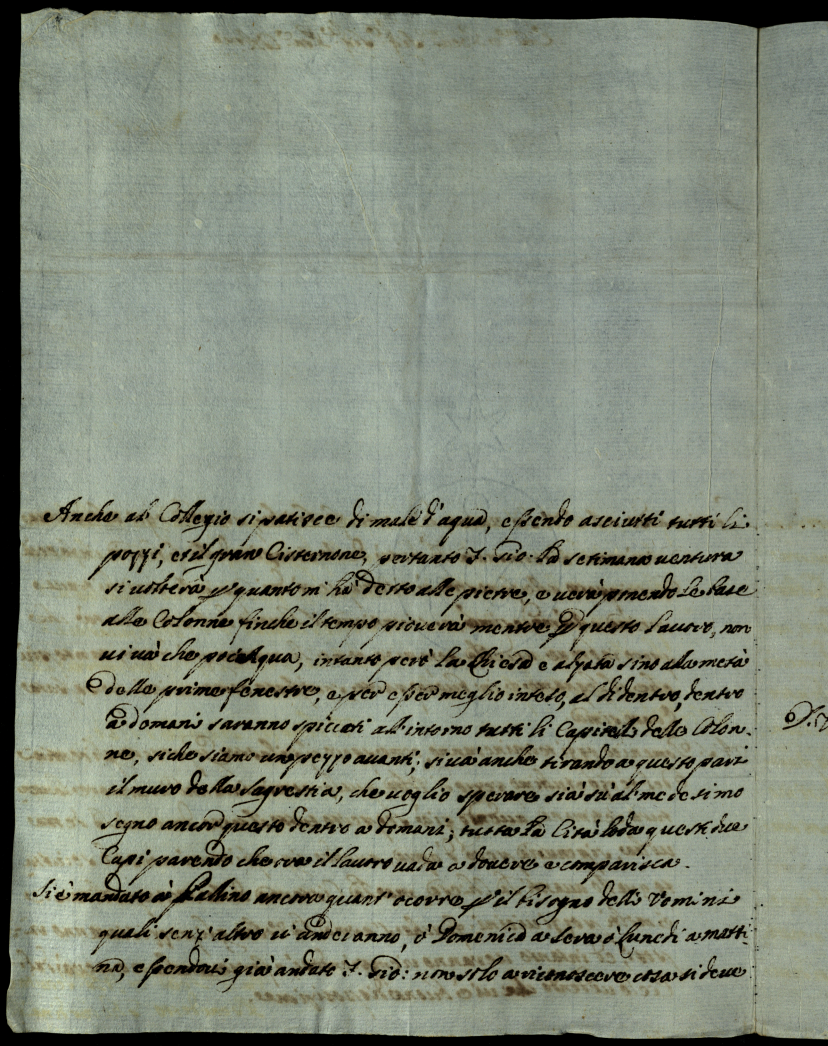 Anche al Collegio si patisce di male d'aqua, essendo asciutti tutti li
pozzi, e sil gran Cisternone, pertanto S. Gio: la setimana ventura
si volterà p quanto m'hà detto alle pietre, e verà ponendo le base
alle Colonne finche il tempo pioverà mentre p questo lauoro, non
ui và che poc'Aqua, intanto però la Chiesa è alzata sino alla metà
delle prime fenestre, e per esser meglio inteso, al di dentro, dentro
à domani saranno spiccati all'intorno tutti li Capitelli delle Colon-
ne, siche siamo un pezzo auanti; si và anche tirando a questo pari
il muro della Sagrestia, che uoglio sperare sia sù al medesimo
segno ancor questo dentro a domani; tutta la Cità loda questi due
Capi parendo che ora il lauoro uada a douere e comparisca.
Si è mandato à ancora quant'ocorre p il bisogno delli Uomini
quali senz'altro ui anderanno, ò Domenica a sera ò Lunedi a matti-
na, essendoui già andato S. Gio: non solo a riconoscere cosa si deue